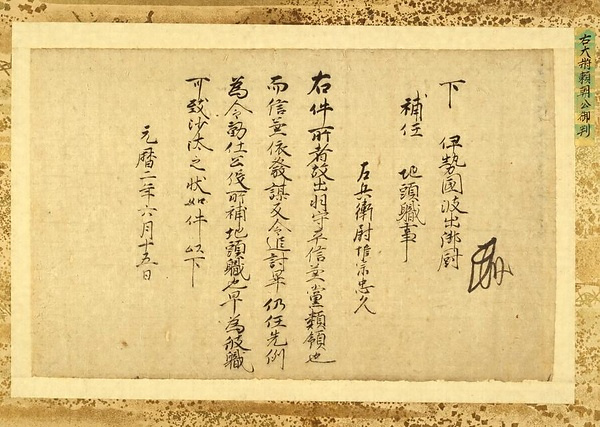 右大将頼朝公御判
下 伊勢國波出御厨
補任 地頭職事
左兵衛尉惟宗忠久
右件所者故出羽守平信兼党類領也
而信兼依發謀反令追討畢仍任先例
為令勤仕公役所補地頭職也早為彼職
可致沙汰之状如件以下
元暦二年六月十五日